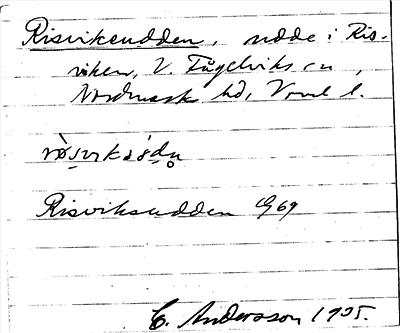 Risviksudden, udde i Ris-
viken, V. Fågelviks sn,
Nordmarks hd, Vrml l.
Risviksudden G69
C. Andersson 1935.